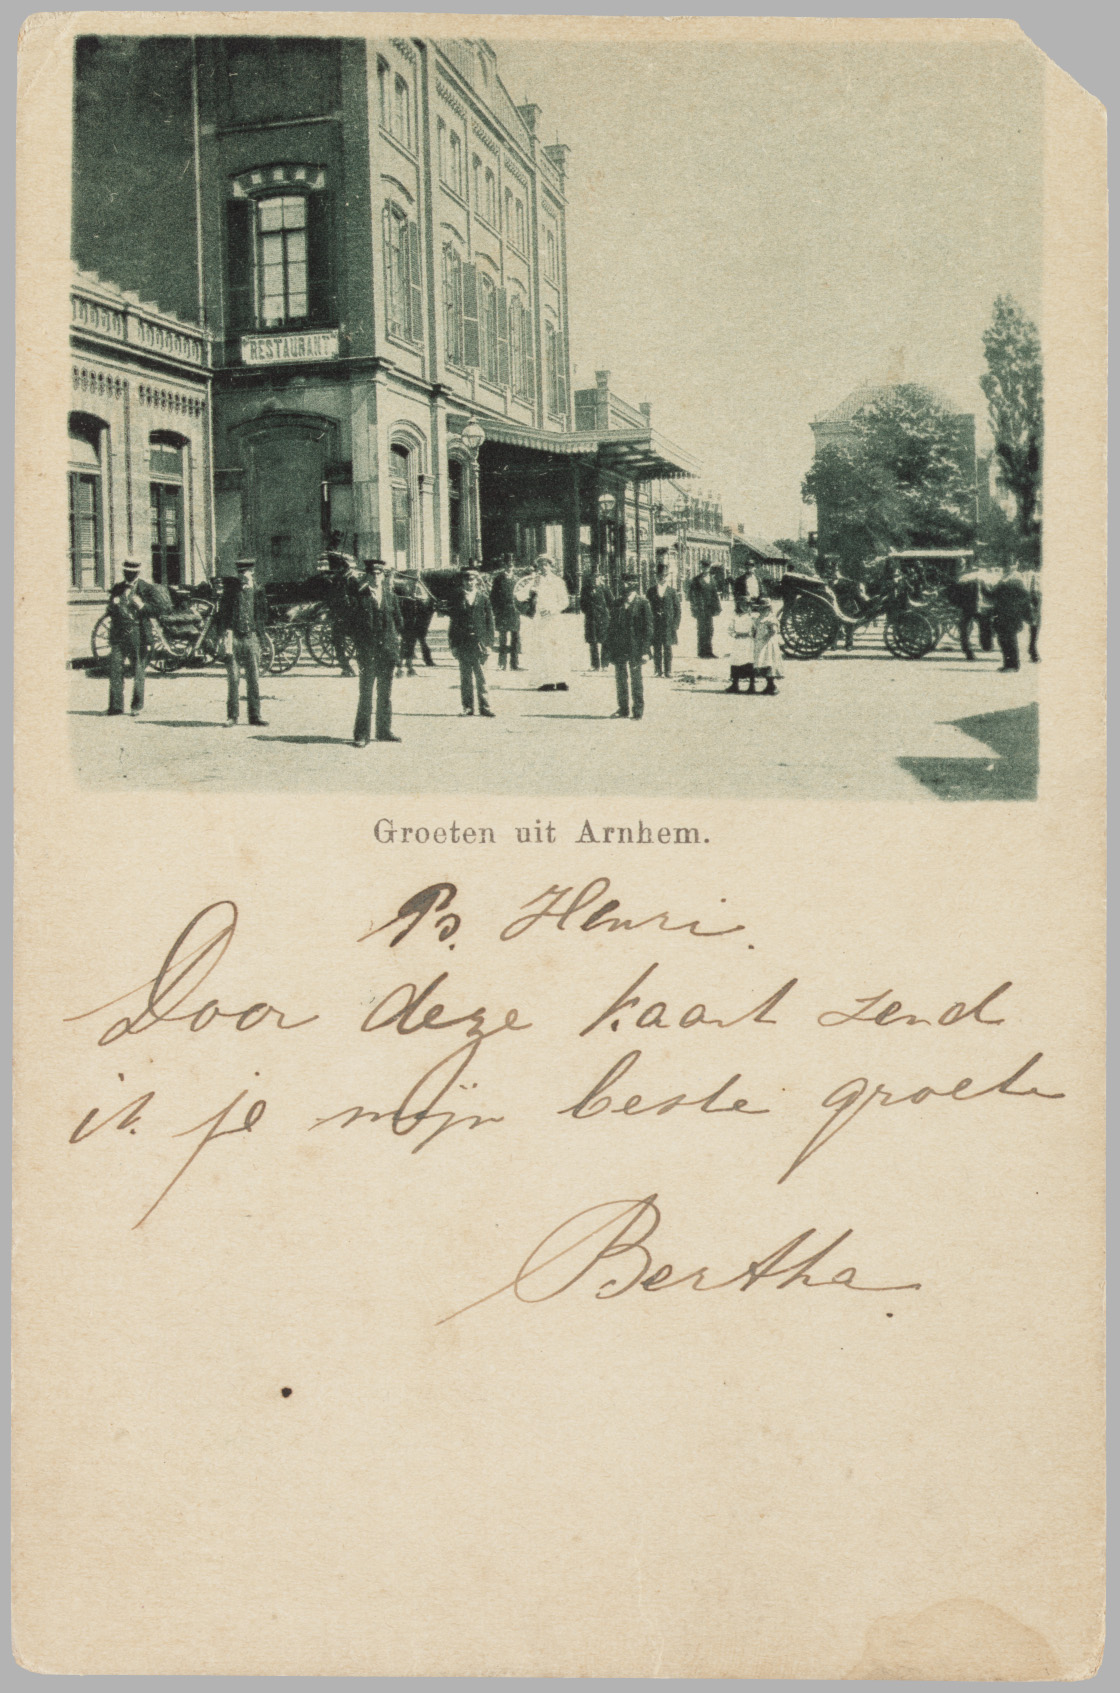 "RESTAURANT"
Groeten uit Arnhem.
Bs. Henri.
Door deze kaart zend
ik je mijn beste groete
Bertha.